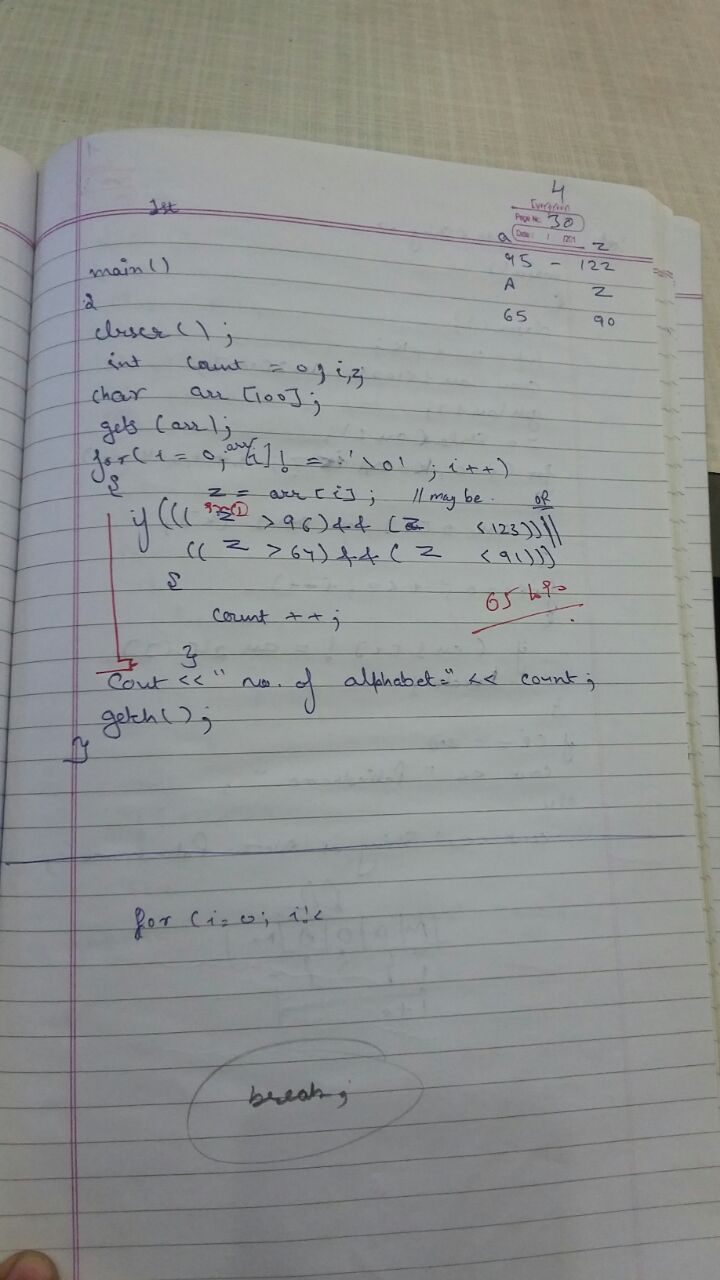 4
Evergreen
Page No. 30
Date: / /201
1st
a - z
95 - 122
main()
A Z
{
65 90
clrscr();
int count = 0, i, z;
char arr [100];
gets (arr);
for( i = 0; arr[i]! = '\0' ; i++)
{
z = arr [i]; // may be. OR
if ((( z >96)&& (z <123))||
(( z >64)&&( z <91)))
{
65
count ++;
}
Cout << " no. of alphabet=" << count;
getch();
}
for (i=0; i!<
break;